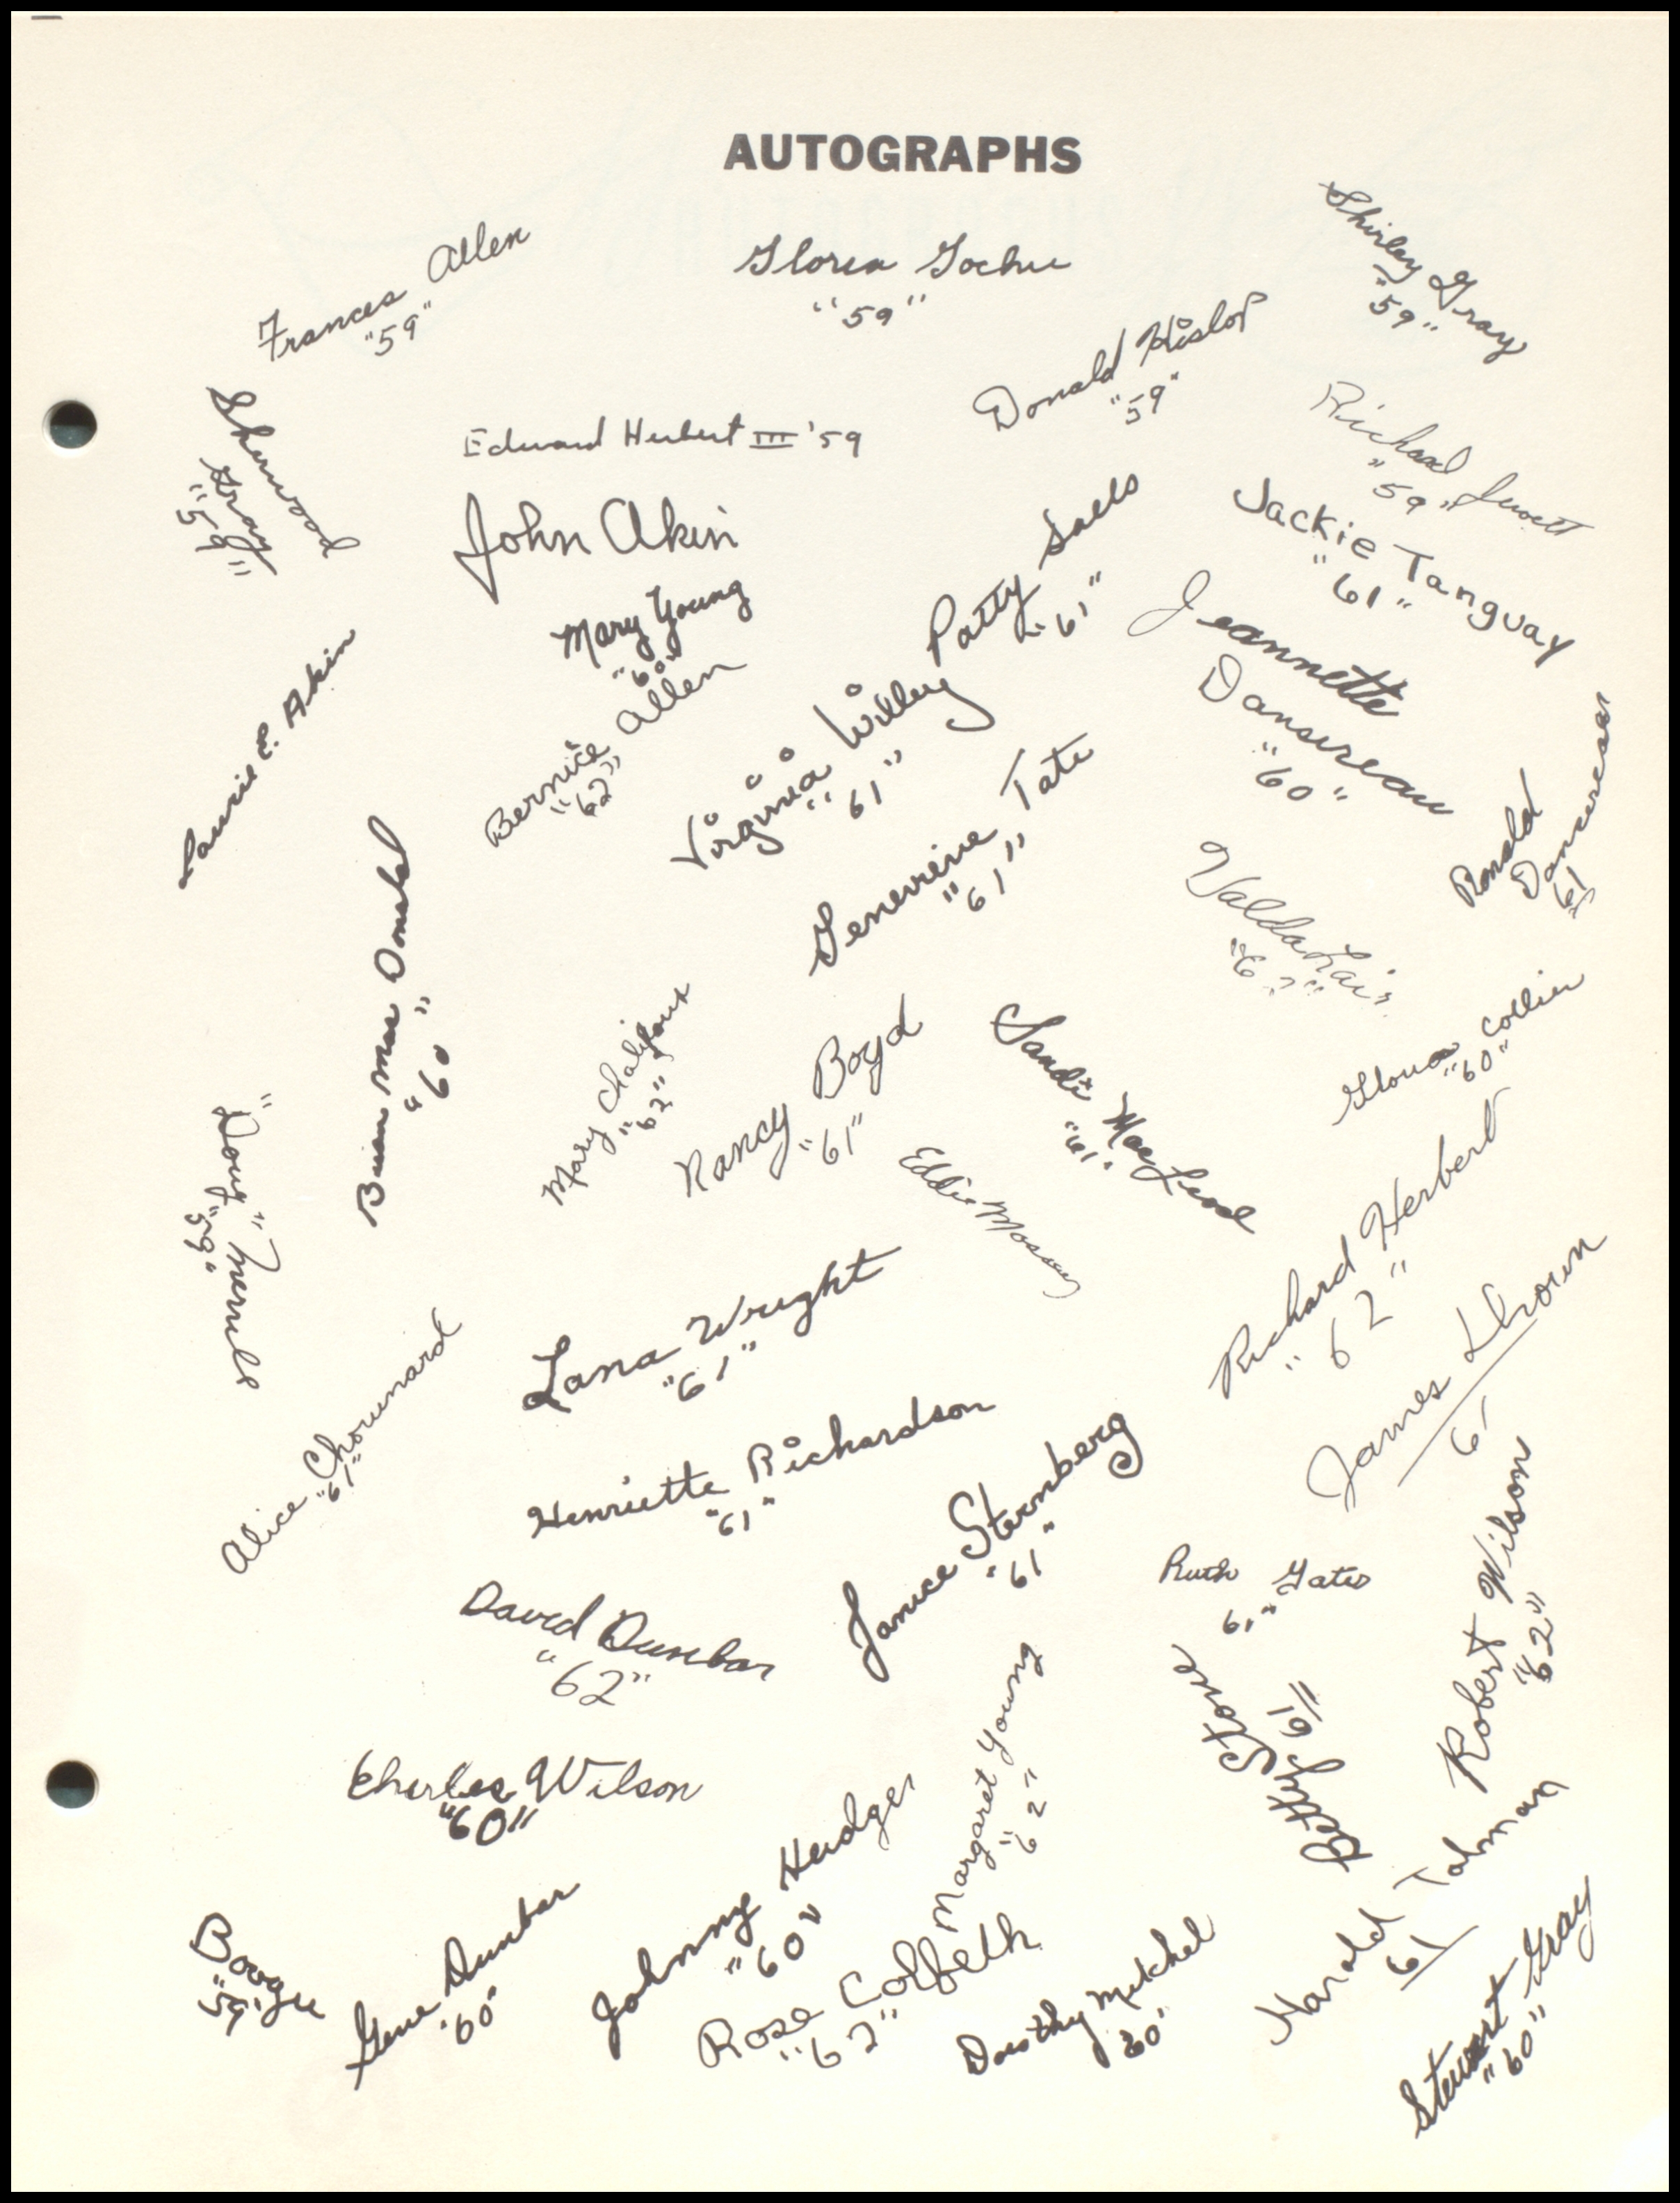 AUTOGRAPHS
Frances Allen
"59"
Gloria Gochie
"59"
Shirley Gray
"59"
Donald Hislop
"59"
Sherwood
Gray
"59"
Edward Herbert III '59
Richard
"59"
John Akin
Jackie Tanguay
"61"
Patty Salls
"61"
Mary Young
"60"
Jeannette
Dansereau
"60"
Laurie E. Akin
Bernice Allen
"62"
Virginia Willey
"61"
Ronald
Dansereau
61
Genevieve Tate
"61"
Brian Mac Donald
"60"
Valda Lair
"62"
Mary Chalifoux
"62"
Nancy Boyd
"61"
Sandi MacLeod
"61"
Gloria Collier
"60"
"Doug" Merrill
"59"
Eddie
Richard Herbert
"62"
Lana Wright
"61"
James Drown
61
Alice Chouinard
"61"
Henriette Richardson
"61"
Janice Sternberg
"61"
Ruth Gates
61"
Robert Wilson
"62"
David Dunbar
"62"
Betty Stone
61"
Margaret Young
"62"
Charles Wilson
"60"
Harold Tolman
61
Johnny Hedges
"60"
Boogie
"59"
Gene Dunbar
"60"
Rose Colbeth
"62"
Dorothy Mitchel
"60"
Stewart Gray
"60"